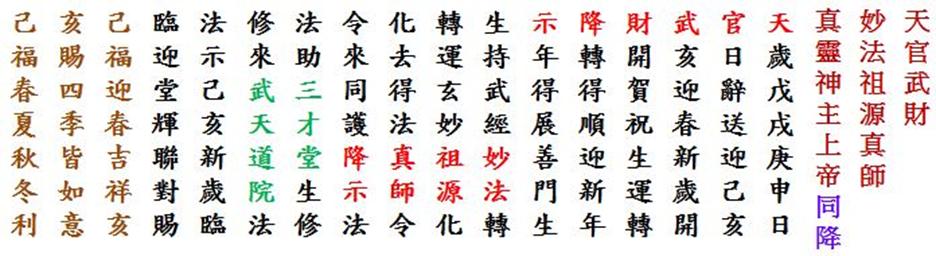 天官武財
妙法祖源真師
真靈神主上帝同降
天歲戊戌庚申日
官日辭送迎己亥
武亥迎春新歲開
財開賀祝生運轉
降轉得順迎新年
示年得展善門生
生持武經妙法轉
轉運玄妙祖源化
化去得法真師令
令來同護降示法
法助三才堂生修
修來武天道院法
法示己亥新歲臨
臨迎堂輝聯對賜
己福迎春吉祥亥
亥賜四季皆如意
己福春夏秋冬利